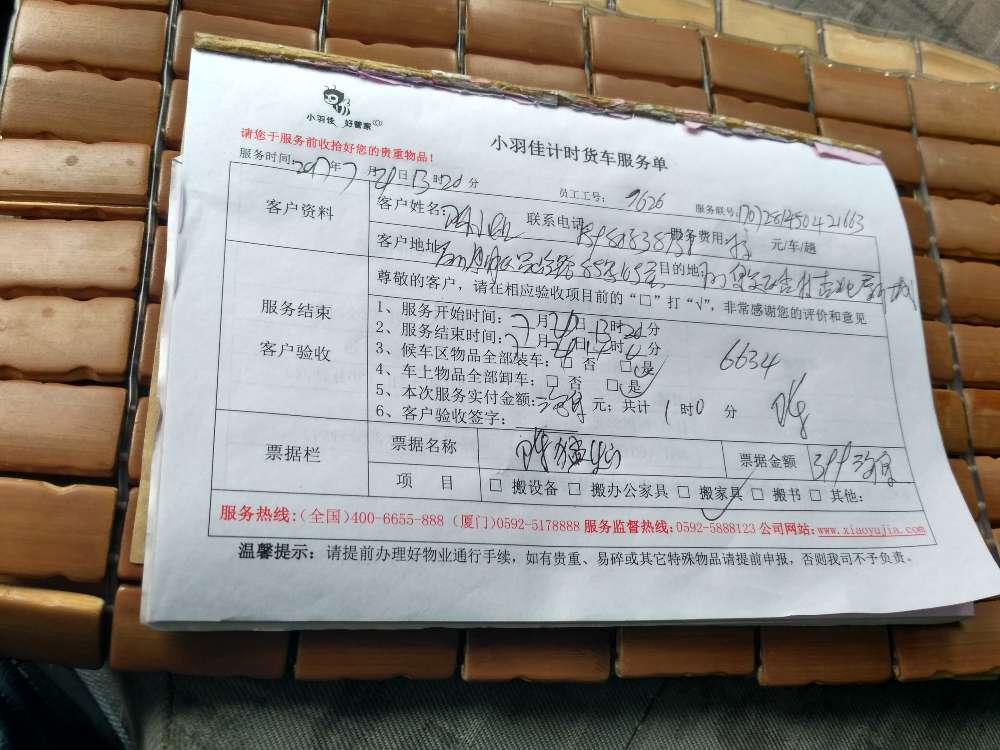 小羽佳 好管家
小羽佳计时货车服务单
请您于服务前收拾好您的贵重物品!
服务时间: 2017年7月 日13时20分 员工工号: 9626 服务联号:
客户资料 客户姓名: 联系电话: 服务费用: 元/车/趟
客户地址: 目的地:
服务结束 客户验收 尊敬的客户,请在相应验收项目前的“□”打“√”,非常感谢您的评价和意见
1、服务开始时间: 7月 日13时20分
2、服务结束时间: 7月 日14时 分
3、候车区物品全部装车: □ 否 □ 是
4、车上物品全部卸车: □ 否 □ 是
5、本次服务实付金额: 元; 共计 1时0分
6、客户验收签字:
6634
票据栏 票据名称 票据金额
项 目 □ 搬设备 □ 搬办公家具 □ 搬家具 □ 搬书 □ 其他:
服务热线:(全国)400-6655-888 (厦门)0592-5178888 服务监督热线:0592-5888123 公司网站:www.xiaoyujia.com
温馨提示: 请提前办理好物业通行手续,如有贵重、易碎或其它特殊物品请提前申报,否则我司不予负责。